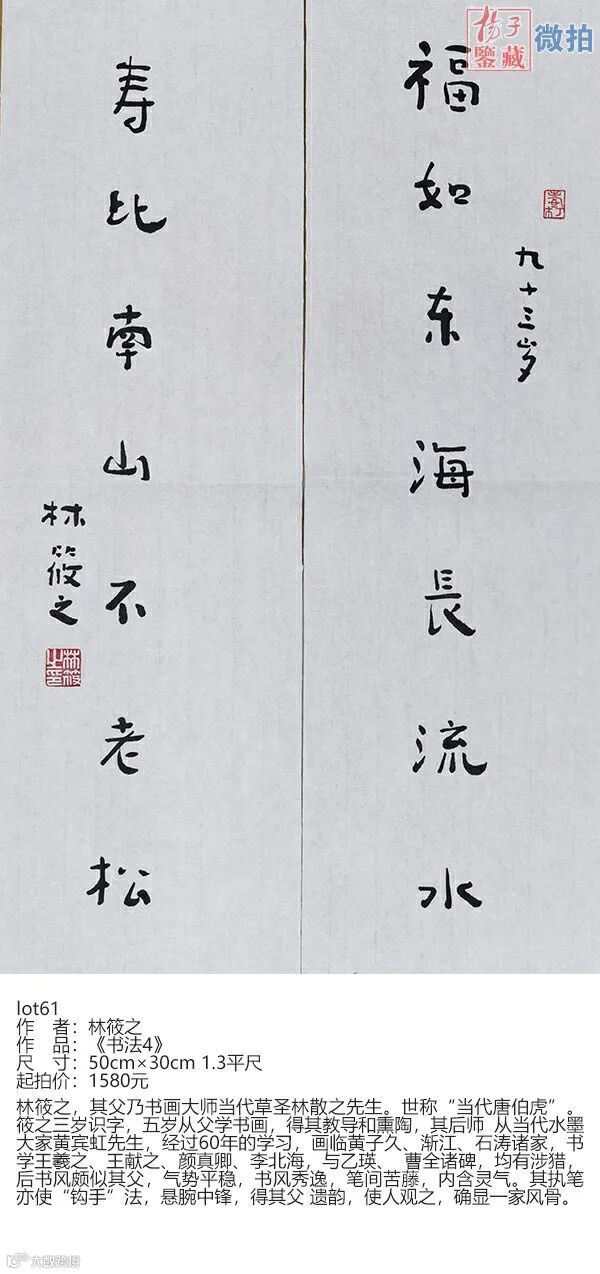 杨子
鑒藏
微拍
福如东海長流水
九十三岁
寿比南山不老松
林筱之
林筱之印
lot61
作 者：林筱之
作 品：《书法4》
尺 寸：50cm×30cm 1.3平尺
起拍价：1580元
林筱之，其父乃书画大师当代草圣林散之先生。世称“当代唐伯虎”。
筱之三岁识字，五岁从父学书画，得其教导和熏陶，其后师 从当代水墨
大家黄宾虹先生，经过60年的学习，画临黄子久、渐江、石涛诸家，书
学王羲之、王献之、颜真卿、李北海，与乙瑛、 曹全诸碑，均有涉猎，
后书风颇似其父，气势平稳，书风秀逸，笔间苦藤，内含灵气。其执笔
亦使“钩手”法，悬腕中锋，得其父 遗韵，使人观之，确显一家风骨。
大数跨境